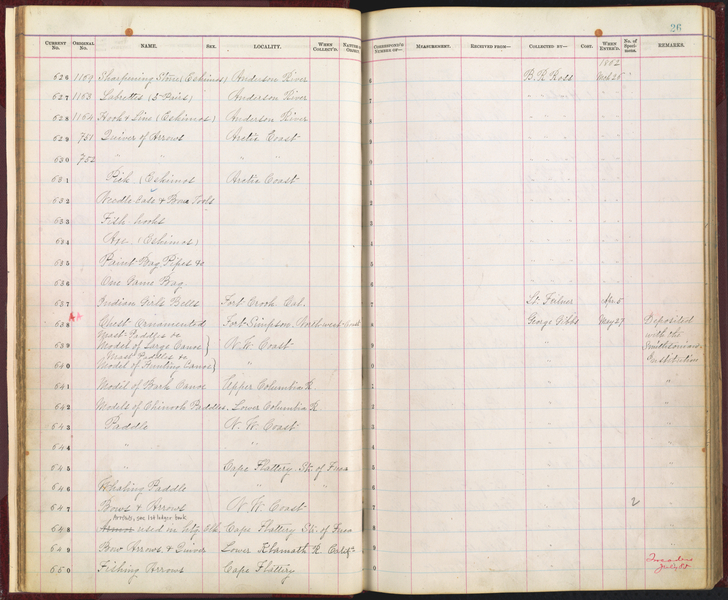 26
CURRENT No. ORIGINAL No. NAME. SEX. LOCALITY. WHEN COLLECT'D. CORRESPOND'G NUMBER OF— MEASUREMENT. RECEIVED FROM— COLLECTED BY— COST. WHEN ENTER'D. No. of Speci-mens. REMARKS.
1862
626 1159 Sharpening Stone (Eskimos) Anderson River B. R. Ross
627 1163 Labrettes (2 Pairs) Anderson River " " "
628 1164 Hook & Line (Eskimos) Anderson River " " "
629 751 Quiver of Arrows Arctic Coast " " "
630 752 " " " " " " "
631 Pick (Eskimos Arctic Coast " " "
632 Needle & Bone Tools " " "
633 Fish-hooks " " "
634 (Eskimos) " " "
635 Paint Bag Pipes &c " " "
636 One Game Bag " " "
637 Indian Girls Belts Fort Crook Cal. Lt. Feilner Apr. 5
638 Chest Ornamented Fort Simpson Northwest Coast George Gibbs May 27 Deposited
Mast Paddles &c with the
639 Model of Large Canoe } N. W. Coast " " " Smithsonian
Mast Paddles &c Institution
640 Model of Hunting Canoe} " " " "
641 Model of Bark Canoe Upper Columbia R " " " "
642 Models of Chinook Paddles. Lower Columbia R " " " "
643 Paddle N. W. Coast " " " "
644 " " " " " " "
645 " Cape Flattery. Sts. of Fuca " " " "
646 Whaling Paddle " " " " " "
647 Bows & Arrows N. W. Coast " " " 2 "
648 Armor used in Cape Flattery Sts. of Fuca " " " "
649 Bow Arrows & Quiver Lower Klamath R. Calif. " " " "
650 Fishing Arrows Cape Flattery " " "